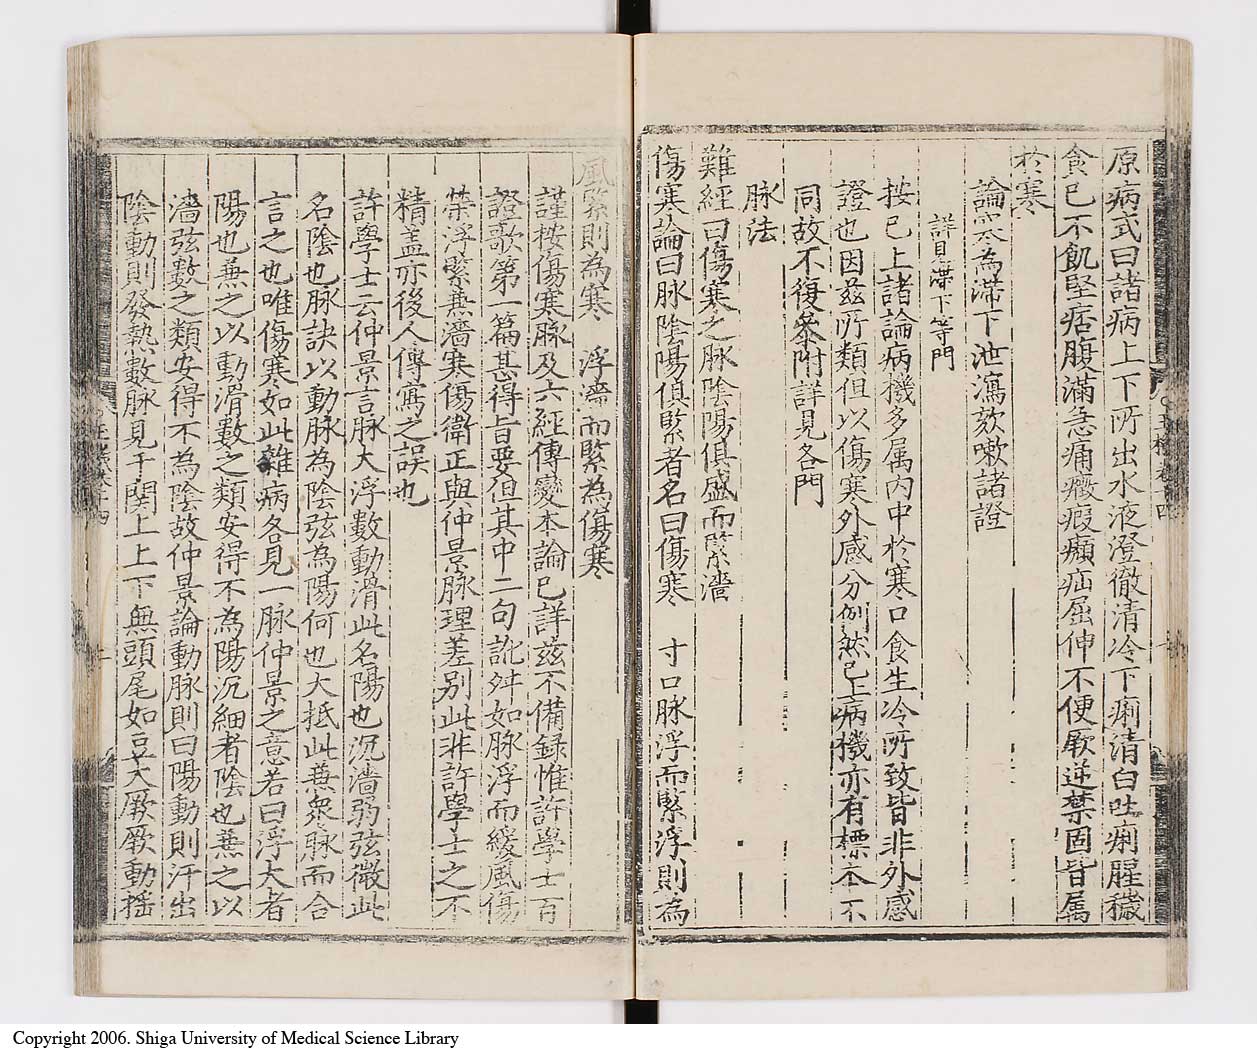 原病式曰諸病上下所出水液澄徹清冷下痢清白吐痢腥穢
食已不飢堅痞腹滿急痛癥瘕癩疝屈伸不便厥逆禁固皆屬
於寒
論寒為滯下泄瀉欬嗽諸證
詳見滯下等門
按已上諸論病機多属内中於寒口食生冷所致皆非外感
證也因茲所類但以傷寒外感分例然已上病機亦有標本不
同故不復叅附詳見各門
脉法
難經曰傷寒之脉陰陽俱盛而緊濇
傷寒論曰脉陰陽俱緊者名曰傷寒 寸口脉浮而緊浮則為
風緊則為寒 浮濇而緊為傷寒
謹按傷寒脉及六經傳變本論已詳茲不備録惟許學士百
證歌第一篇甚得旨要但其中二句訛舛如脉浮而緩風傷
榮浮緊兼濇寒傷衛正與仲景脉理差别此非許學士之不
精盖亦後人傳寫之誤也
許學士云仲景言脉大浮數動滑此名陽也沉濇弱弦微此
名陰也脉訣以動脉為陰弦為陽何也大抵此兼衆脉而合
言之也唯傷寒如此雜病各見一脉仲景之意若曰浮大者
陽也兼之以動滑數之類安得不為陽沉細者陰也兼之以
濇弦數之類安得不為陰故仲景論動脉則曰陽動則汗出
陰動則發熱數脉見于関上上下無頭尾如豆大厥厥動揺